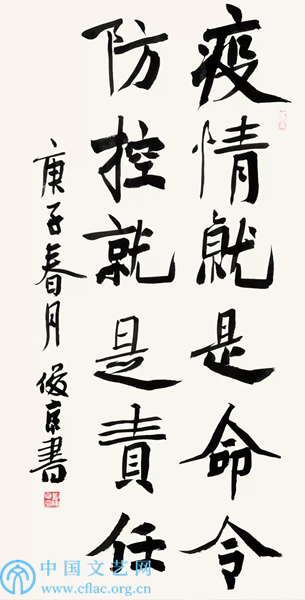 疫情就是命令
防控就是責任
庚子春月 俊京書
中国文艺网
www.cflac.org.cn